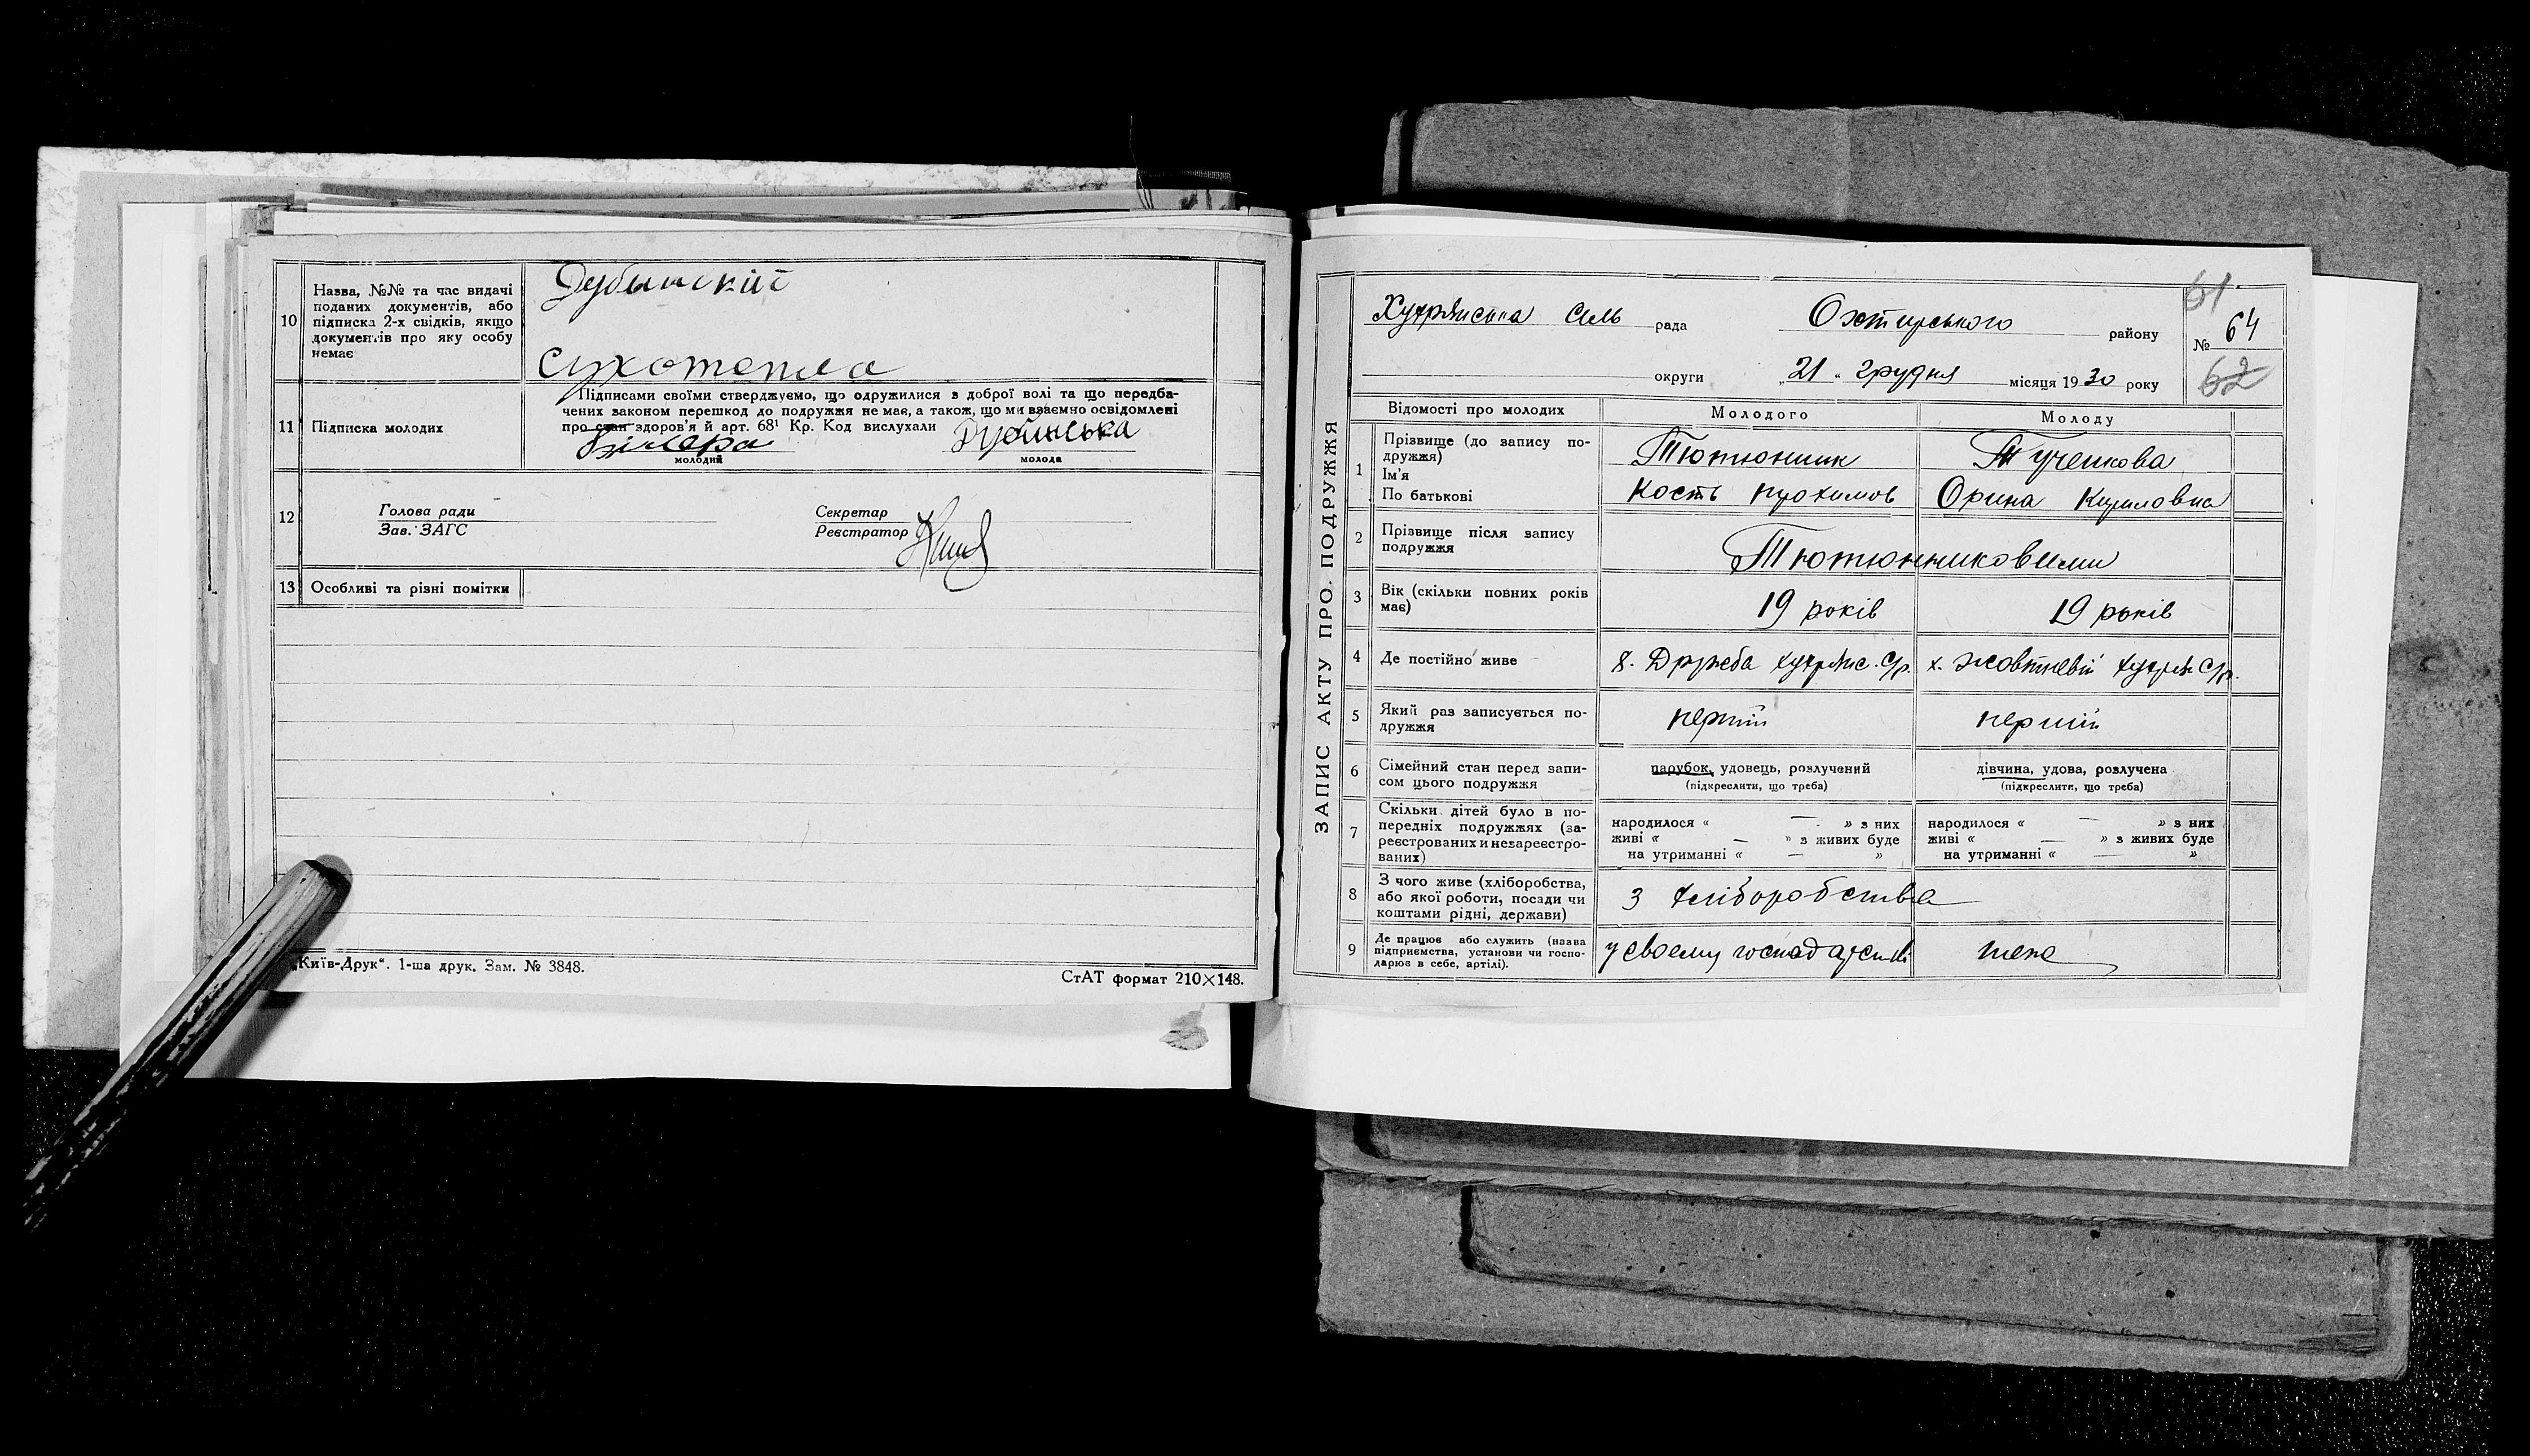 10
Назва, №№ та час видачі
поданих документів, або
підписка 2-х свідків, якщо
документів про яку особу
немає
Дубинский
Сухотепла
11
Підписка молодих
Підписами своїми стверджуємо, що одружилися в доброї волі та що передба-
чених законом перешкод до подружжя не має, а також, що ми взаємно освідомлені
про стан здоров'я й арт. 68¹ Кр. Код вислухали
Дубинська
молодий
молода
12
Голова ради
Зав. ЗАГС
Секретар
Реєстратор
13
Особливі та різні помітки
„Київ-Друк“. 1-ша друк. Зам. № 3848.
СтАТ формат 210×148.
ЗАПИС АКТУ ПРО ПОДРУЖЖЯ
61
Хухрянська Сель рада
Охтирського району
№ 64
округи
„21“ грудня місяця 1930 року
62
Відомості про молодих
Молодого
Молоду
1
Прізвище (до запису по-
дружжя)
Ім'я
По батькові
Тютюнник
Кость Прохимов
Тученкова
Орина Кириловна
2
Прізвище після запису
подружжя
Тютюнниковими
3
Вік (скільки повних років
має)
19 років
19 років
4
Де постійно живе
х. Дружба хухрянс. С/р.
х. Жовтневий хухрян С/р.
5
Який раз записується по-
дружжя
перший
перший
6
Сімейний стан перед запи-
сом цього подружжя
парубок, удовець, розлучений
(підкреслити, що треба)
дівчина, удова, розлучена
(підкреслити, що треба)
7
Скільки дітей було в по-
передніх подружжях (за-
реєстрованих и незареєстро-
ваних)
народилося « — » з них
живі « — » з живих буде
на утриманні « — »
народилося « — » з них
живі « — » з живих буде
на утриманні « — »
8
З чого живе (хліборобства,
або якої роботи, посади чи
коштами рідні, держави)
З хліборобства
9
Де працює або служить (назва
підприємства, установи чи госпо-
дарює в себе, артілі).
у своєму господарстві
теж